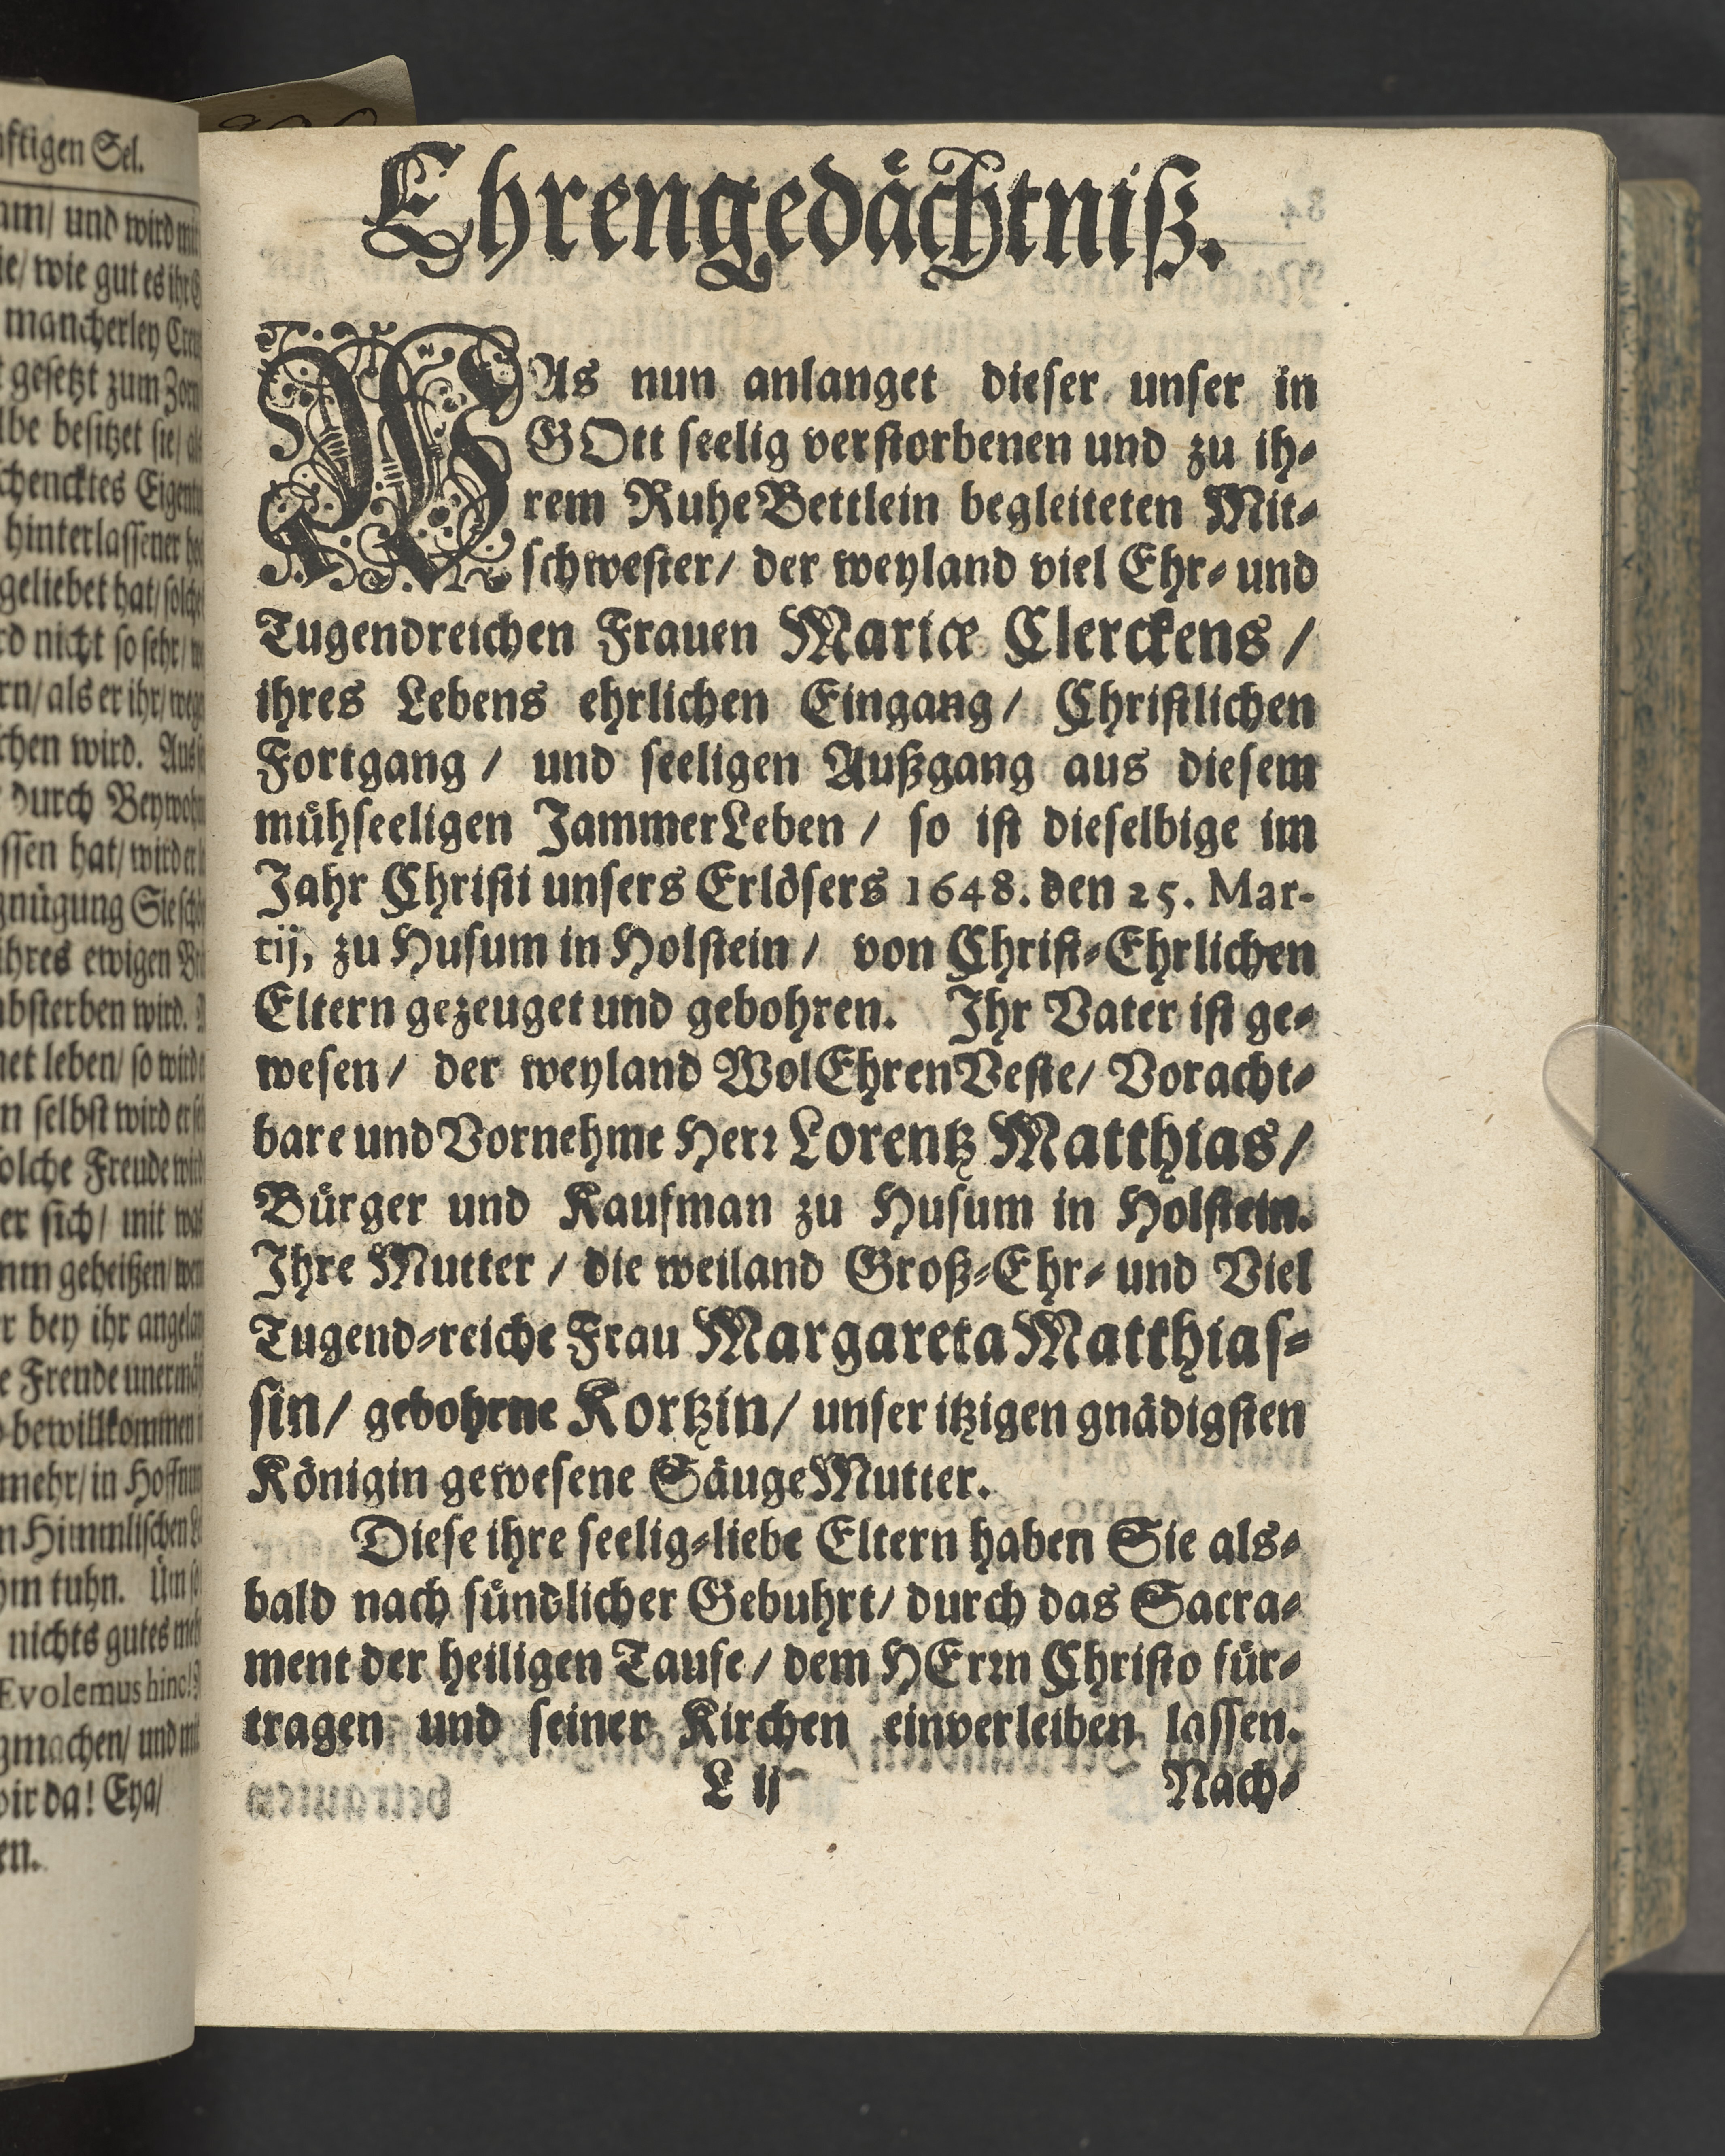 ftigen Sel.
und wird
wie gut es
mancherley
gesetzt zum
besitzet sie/
hinterlassener
geliebet hat/
nicht so sehr/
als er ihr/
wird.
durch
hat/
ihres ewigen
absterben wird.
leben/ so
selbst wird
solche Freude
sich/ mit
geheißen/
bey ihr
Freude
bewillkommen
mehr/ in
Himmlischen
tuhn.
nichts gutes
Evolemus hinc!
machen/ und
wir da! Eya/
Ehrengedächtniß.
WAs nun anlanget dieser unser in
GOtt seelig verstorbenen und zu ih-
rem RuheBettlein begleiteten Mit-
schwester/ der weyland viel Ehr- und
Tugendreichen Frauen Mariæ Clerckens/
ihres Lebens ehrlichen Eingang/ Christlichen
Fortgang/ und seeligen Außgang aus diesem
mühseeligen JammerLeben/ so ist dieselbige im
Jahr Christi unsers Erlösers 1648. den 25. Mar-
tij, zu Husum in Holstein/ von Christ-Ehrlichen
Eltern gezeuget und gebohren. Ihr Vater ist ge-
wesen/ der weyland WolEhrenVeste/ Voracht-
bare und Vornehme Herr Lorentz Matthias/
Bürger und Kaufman zu Husum in Holstein.
Ihre Mutter/ die weiland Groß-Ehr- und Viel
Tugend-reiche Frau Margareta Matthias-
sin/ gebohrne Kortzin/ unser itzigen gnädigsten
Königin gewesene SäugeMutter.
Diese ihre seelig-liebe Eltern haben Sie als-
bald nach sündlicher Gebuhrt/ durch das Sacra-
ment der heiligen Taufe/ dem HErrn Christo für-
tragen und seiner Kirchen einverleiben lassen.
L ij Nach-